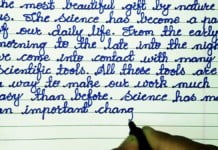 the most beautiful gift by nature
us. The science has become a pa
of our daily life. From the early
morning to the late into the night
we come into contact with many
scientific tools. All those tools are
a way to make our work much
easy than before. Science has m
an important chang